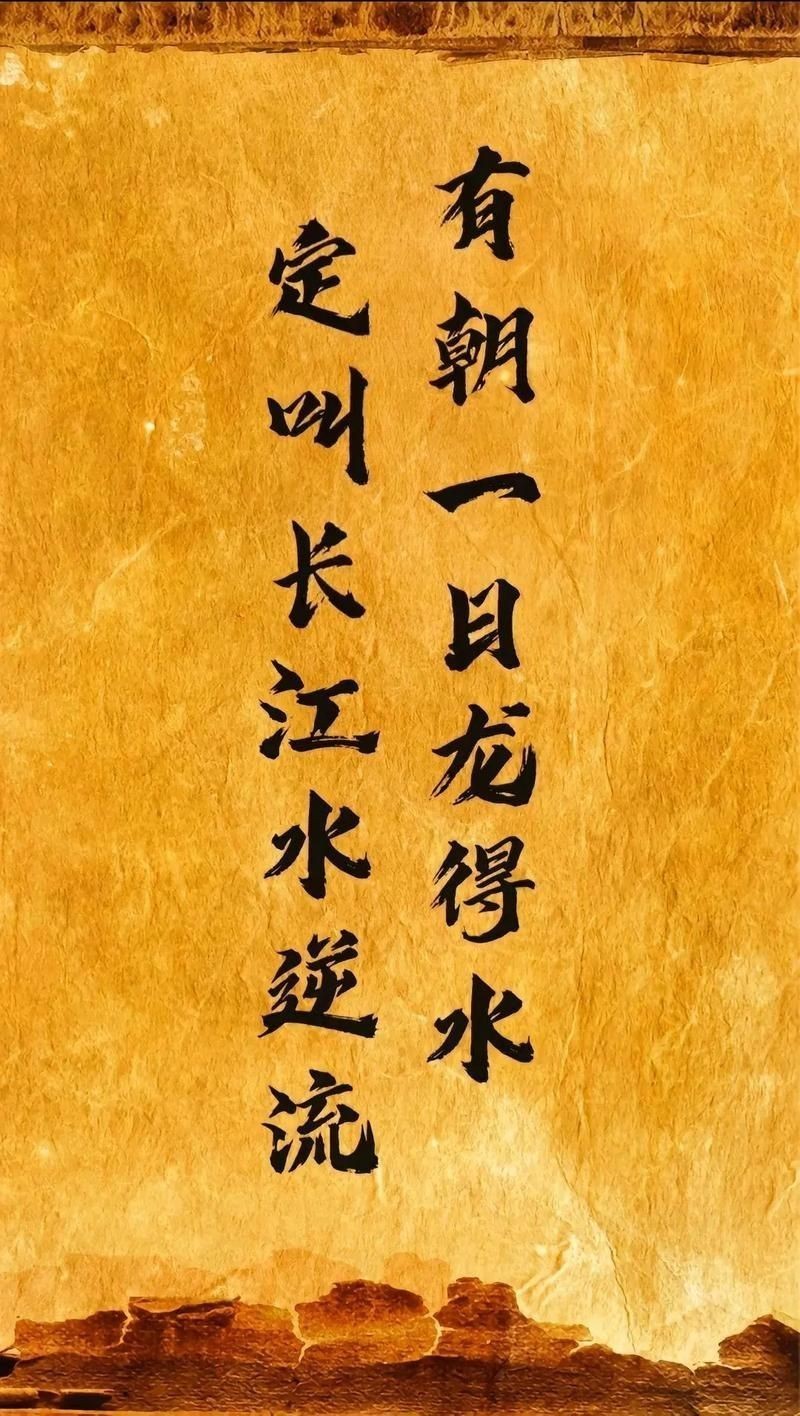 有朝一日龙得水
定叫长江水逆流